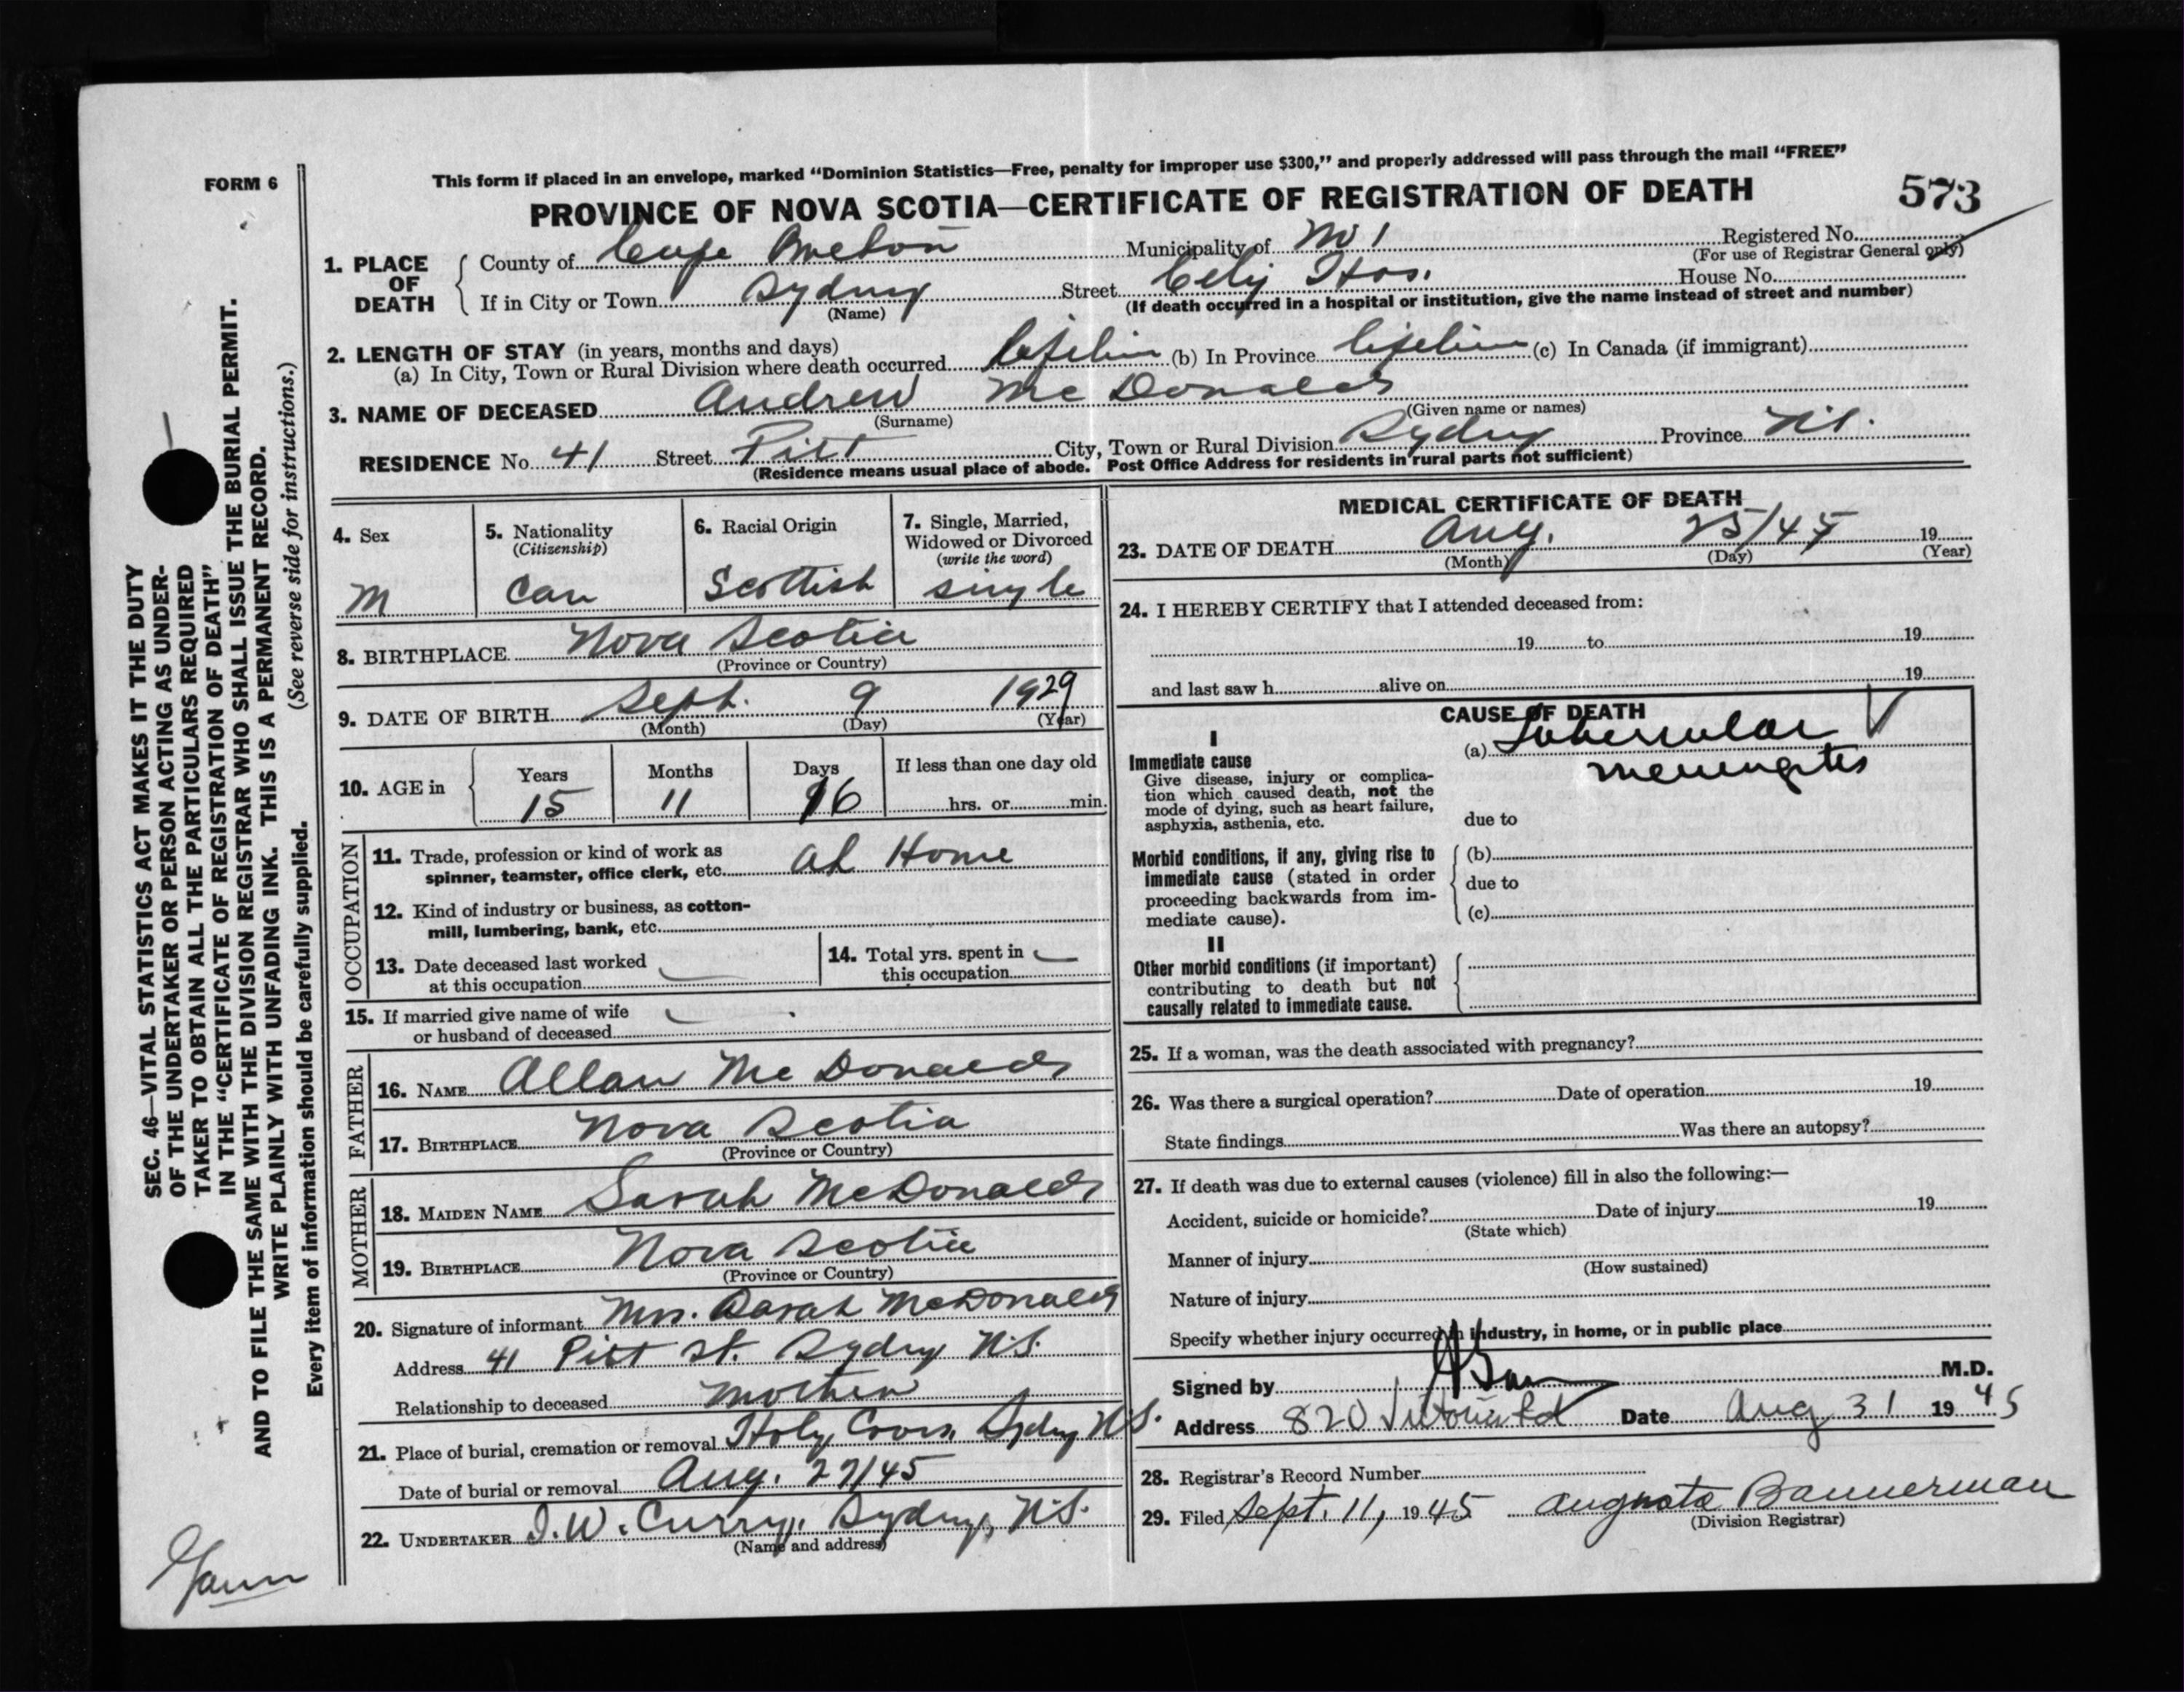 FORM 6
This form if placed in an envelope, marked “Dominion Statistics—Free, penalty for improper use $300,” and properly addressed will pass through the mail “FREE”
PROVINCE OF NOVA SCOTIA—CERTIFICATE OF REGISTRATION OF DEATH
573
1. PLACE OF DEATH
County of Cape Breton Municipality of No 1 Registered No.
(For use of Registrar General only)
If in City or Town Sydney Street City Hos. House No.
(Name) (If death occurred in a hospital or institution, give the name instead of street and number)
2. LENGTH OF STAY (in years, months and days)
(a) In City, Town or Rural Division where death occurred Lifetime (b) In Province Lifetime (c) In Canada (if immigrant)
3. NAME OF DECEASED Andrew McDonald
(Surname) (Given name or names)
RESIDENCE No. 41 Street Pitt City, Town or Rural Division Sydney Province N.S.
(Residence means usual place of abode. Post Office Address for residents in rural parts not sufficient)
4. Sex
M
5. Nationality
(Citizenship)
Can
6. Racial Origin
Scottish
7. Single, Married,
Widowed or Divorced
(write the word)
single
8. BIRTHPLACE Nova Scotia
(Province or Country)
9. DATE OF BIRTH Sept. 9 1929
(Month) (Day) (Year)
10. AGE in
Years Months Days If less than one day old
15 11 16 hrs. or min.
OCCUPATION
11. Trade, profession or kind of work as
spinner, teamster, office clerk, etc. at Home
12. Kind of industry or business, as cotton-
mill, lumbering, bank, etc.
13. Date deceased last worked
at this occupation
14. Total yrs. spent in
this occupation
15. If married give name of wife
or husband of deceased
FATHER
16. NAME Allan McDonald
17. BIRTHPLACE Nova Scotia
(Province or Country)
MOTHER
18. MAIDEN NAME Sarah McDonald
19. BIRTHPLACE Nova Scotia
(Province or Country)
20. Signature of informant Mrs. Sarah McDonald
Address 41 Pitt St. Sydney N.S.
Relationship to deceased mother
21. Place of burial, cremation or removal Holy Cross Sydney N.S.
Date of burial or removal Aug. 27/45
22. UNDERTAKER Curry, Sydney, N.S.
(Name and address)
MEDICAL CERTIFICATE OF DEATH
23. DATE OF DEATH Aug. 25/45 19
(Month) (Day) (Year)
24. I HEREBY CERTIFY that I attended deceased from:
19 to 19
and last saw h alive on 19
CAUSE OF DEATH
I
Immediate cause
Give disease, injury or complica-
tion which caused death, not the
mode of dying, such as heart failure,
asphyxia, asthenia, etc.
(a) Tubercular
meningitis
due to
Morbid conditions, if any, giving rise to
immediate cause (stated in order
proceeding backwards from im-
mediate cause).
(b)
due to
(c)
II
Other morbid conditions (if important)
contributing to death but not
causally related to immediate cause.
25. If a woman, was the death associated with pregnancy?
26. Was there a surgical operation? Date of operation 19
State findings Was there an autopsy?
27. If death was due to external causes (violence) fill in also the following:—
Accident, suicide or homicide? Date of injury 19
(State which)
Manner of injury
(How sustained)
Nature of injury
Specify whether injury occurred in industry, in home, or in public place
Signed by M.D.
Address 820 Victoria Rd Date Aug 31 1945
28. Registrar's Record Number
29. Filed Sept. 11, 1945 Augusta Bannerman
(Division Registrar)
SEC. 46—VITAL STATISTICS ACT MAKES IT THE DUTY
OF THE UNDERTAKER OR PERSON ACTING AS UNDER-
TAKER TO OBTAIN ALL THE PARTICULARS REQUIRED
IN THE “CERTIFICATE OF REGISTRATION OF DEATH”
AND TO FILE THE SAME WITH THE DIVISION REGISTRAR WHO SHALL ISSUE THE BURIAL PERMIT.
WRITE PLAINLY WITH UNFADING INK. THIS IS A PERMANENT RECORD.
Every item of information should be carefully supplied. (See reverse side for instructions.)